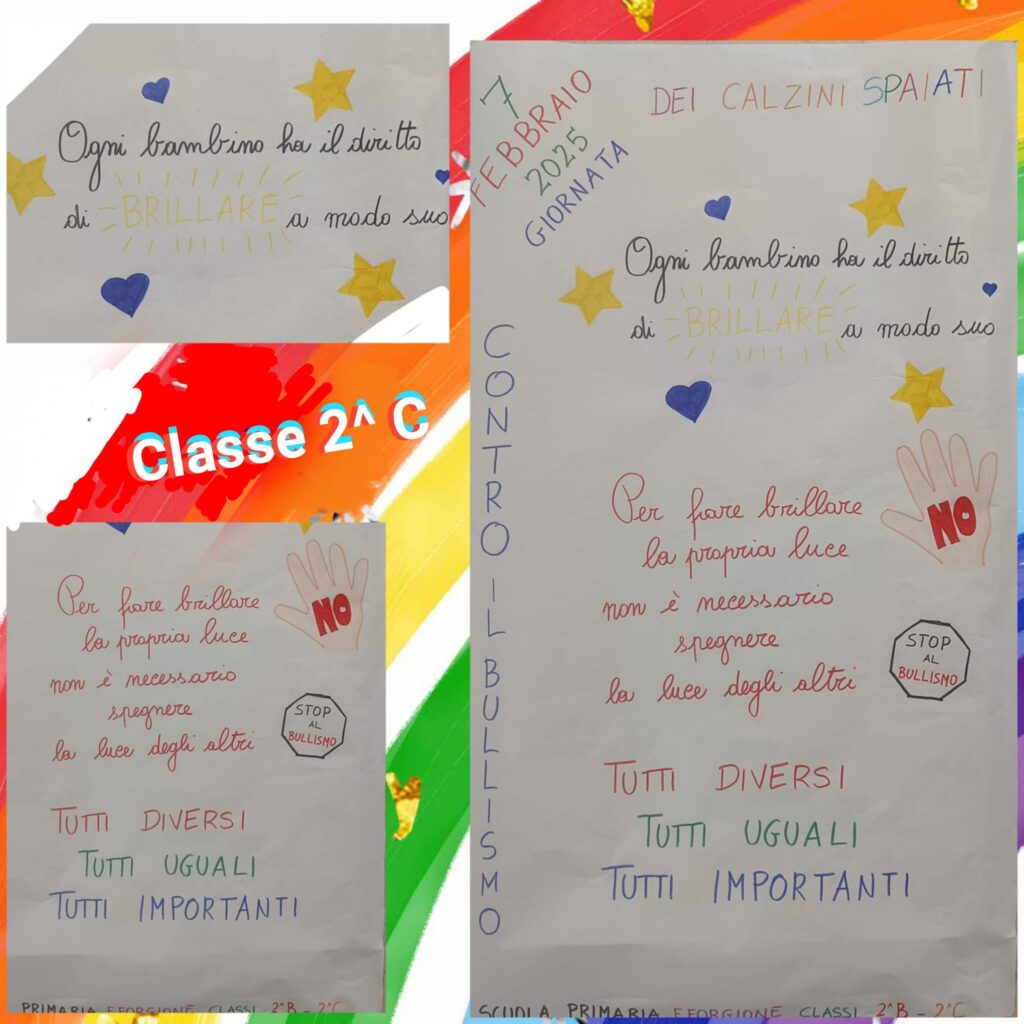 Ogni bambino ha il diritto
di BRILLARE a modo suo
Classe 2^ C
Per fare brillare
la propria luce
non è necessario
spegnere
la luce degli altri
NO
STOP
AL
BULLISMO
TUTTI DIVERSI
TUTTI UGUALI
TUTTI IMPORTANTI
PRIMARIA F.FORGIONE CLASSI 2^B - 2^C
7
FEBBRAIO
2025
GIORNATA
DEI CALZINI SPAIATI
CONTRO IL BULLISMO
Ogni bambino ha il diritto
di BRILLARE a modo suo
Per fare brillare
la propria luce
non è necessario
spegnere
la luce degli altri
NO
STOP
AL
BULLISMO
TUTTI DIVERSI
TUTTI UGUALI
TUTTI IMPORTANTI
SCUOLA PRIMARIA F.FORGIONE CLASSI 2^B - 2^C